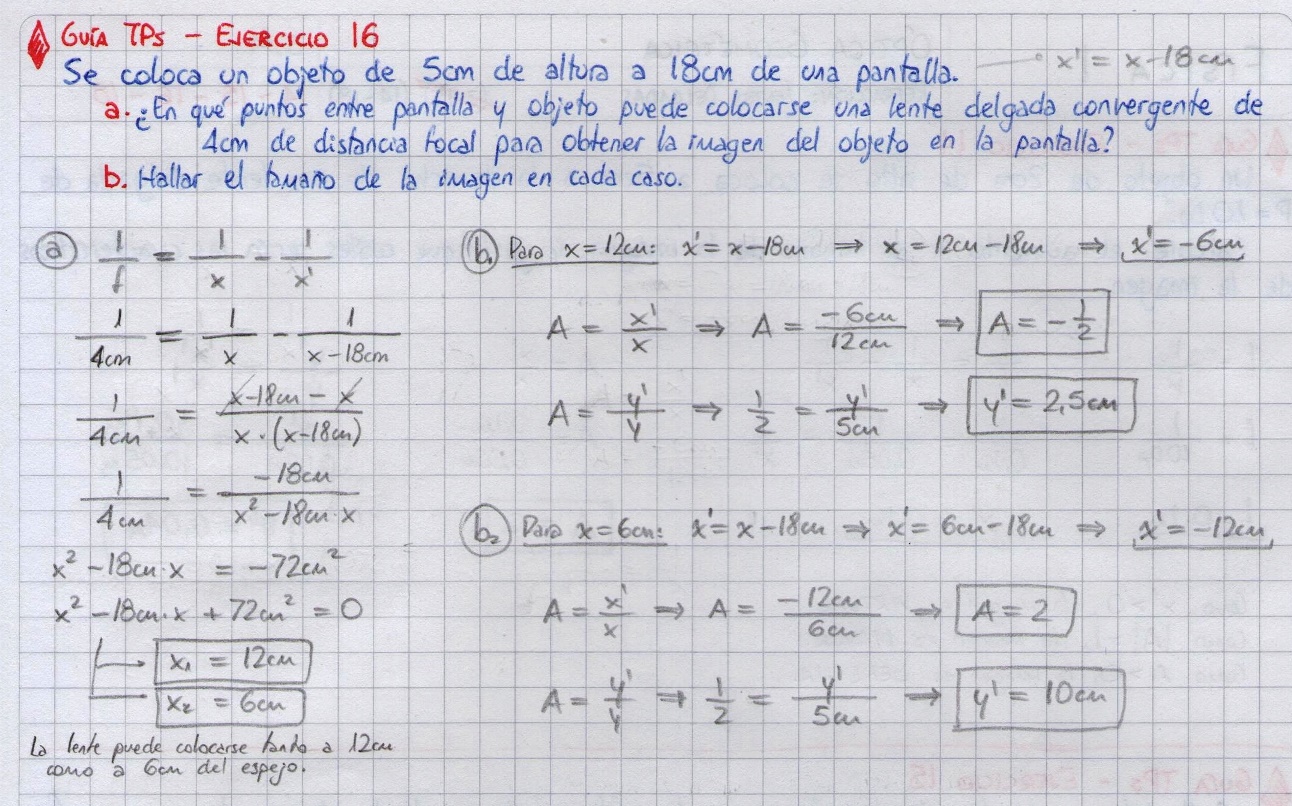 GUÍA TPs - EJERCICIO 16
Se coloca un objeto de 5cm de altura a 18cm de una pantalla.
x' = x-18cm
a. ¿En qué puntos entre pantalla y objeto puede colocarse una lente delgada convergente de
4cm de distancia focal para obtener la imagen del objeto en la pantalla?
b. Hallar el tamaño de la imagen en cada caso.
a) 1/f = 1/x - 1/x'
1/4cm = 1/x - 1/(x-18cm)
1/4cm = (x-18cm - x)/(x·(x-18cm))
1/4cm = -18cm/(x² - 18cm·x)
x² - 18cm·x = -72cm²
x² - 18cm·x + 72cm² = 0
x₁ = 12cm
x₂ = 6cm
La lente puede colocarse tanto a 12cm
como a 6cm del espejo.
b₁) Para x = 12cm: x' = x-18cm ⇒ x = 12cm-18cm ⇒ x' = -6cm
A = x'/x ⇒ A = -6cm/12cm ⇒ A = -1/2
A = y'/y ⇒ 1/2 = y'/5cm ⇒ y' = 2,5cm
b₂) Para x = 6cm: x' = x-18cm ⇒ x' = 6cm-18cm ⇒ x' = -12cm
A = x'/x ⇒ A = -12cm/6cm ⇒ A = 2
A = y'/y ⇒ 1/2 = y'/5cm ⇒ y' = 10cm